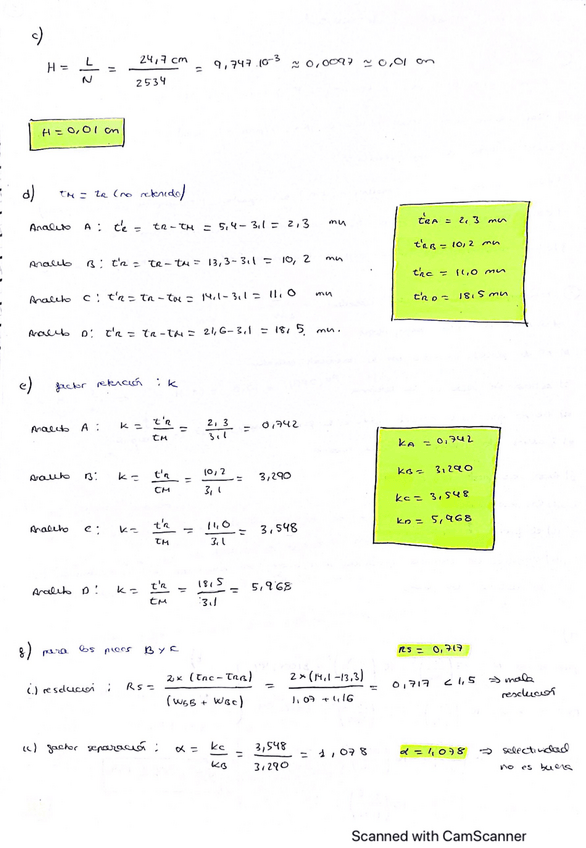 c)
H = L/N = 24,7 cm/2534 = 9,747.10⁻³ ≈ 0,0097 ≃ 0,01 cm
H = 0,01 cm
d) tM = tR (no retenido)
Analito A: t'R = tR - tM = 5,4 - 3,1 = 2,3 min
Analito B: t'R = tR - tM = 13,3 - 3,1 = 10,2 min
Analito C: t'R = tR - tM = 14,1 - 3,1 = 11,0 min
Analito D: t'R = tR - tM = 21,6 - 3,1 = 18,5 min.
t'RA = 2,3 min
t'RB = 10,2 min
t'RC = 11,0 min
t'RD = 18,5 min
e) factor retención: k
Analito A: k = t'R/tM = 2,3/3,1 = 0,742
Analito B: k = t'R/tM = 10,2/3,1 = 3,290
Analito C: k = t'R/tM = 11,0/3,1 = 3,548
Analito D: k = t'R/tM = 18,5/3,1 = 5,968
kA = 0,742
kB = 3,290
kC = 3,548
kD = 5,968
g) para los picos B y C
RS = 0,717
i.) resolución: RS = 2x (tRC - tRB)/(WBB + WBC) = 2x(14,1 - 13,3)/1,07 + 1,16 = 0,717 < 1,5 ⇒ mala resolución
ii) factor separación: α = kC/kB = 3,548/3,290 = 1,078
α = 1,078 ⇒ selectividad no es buena
Scanned with CamScanner